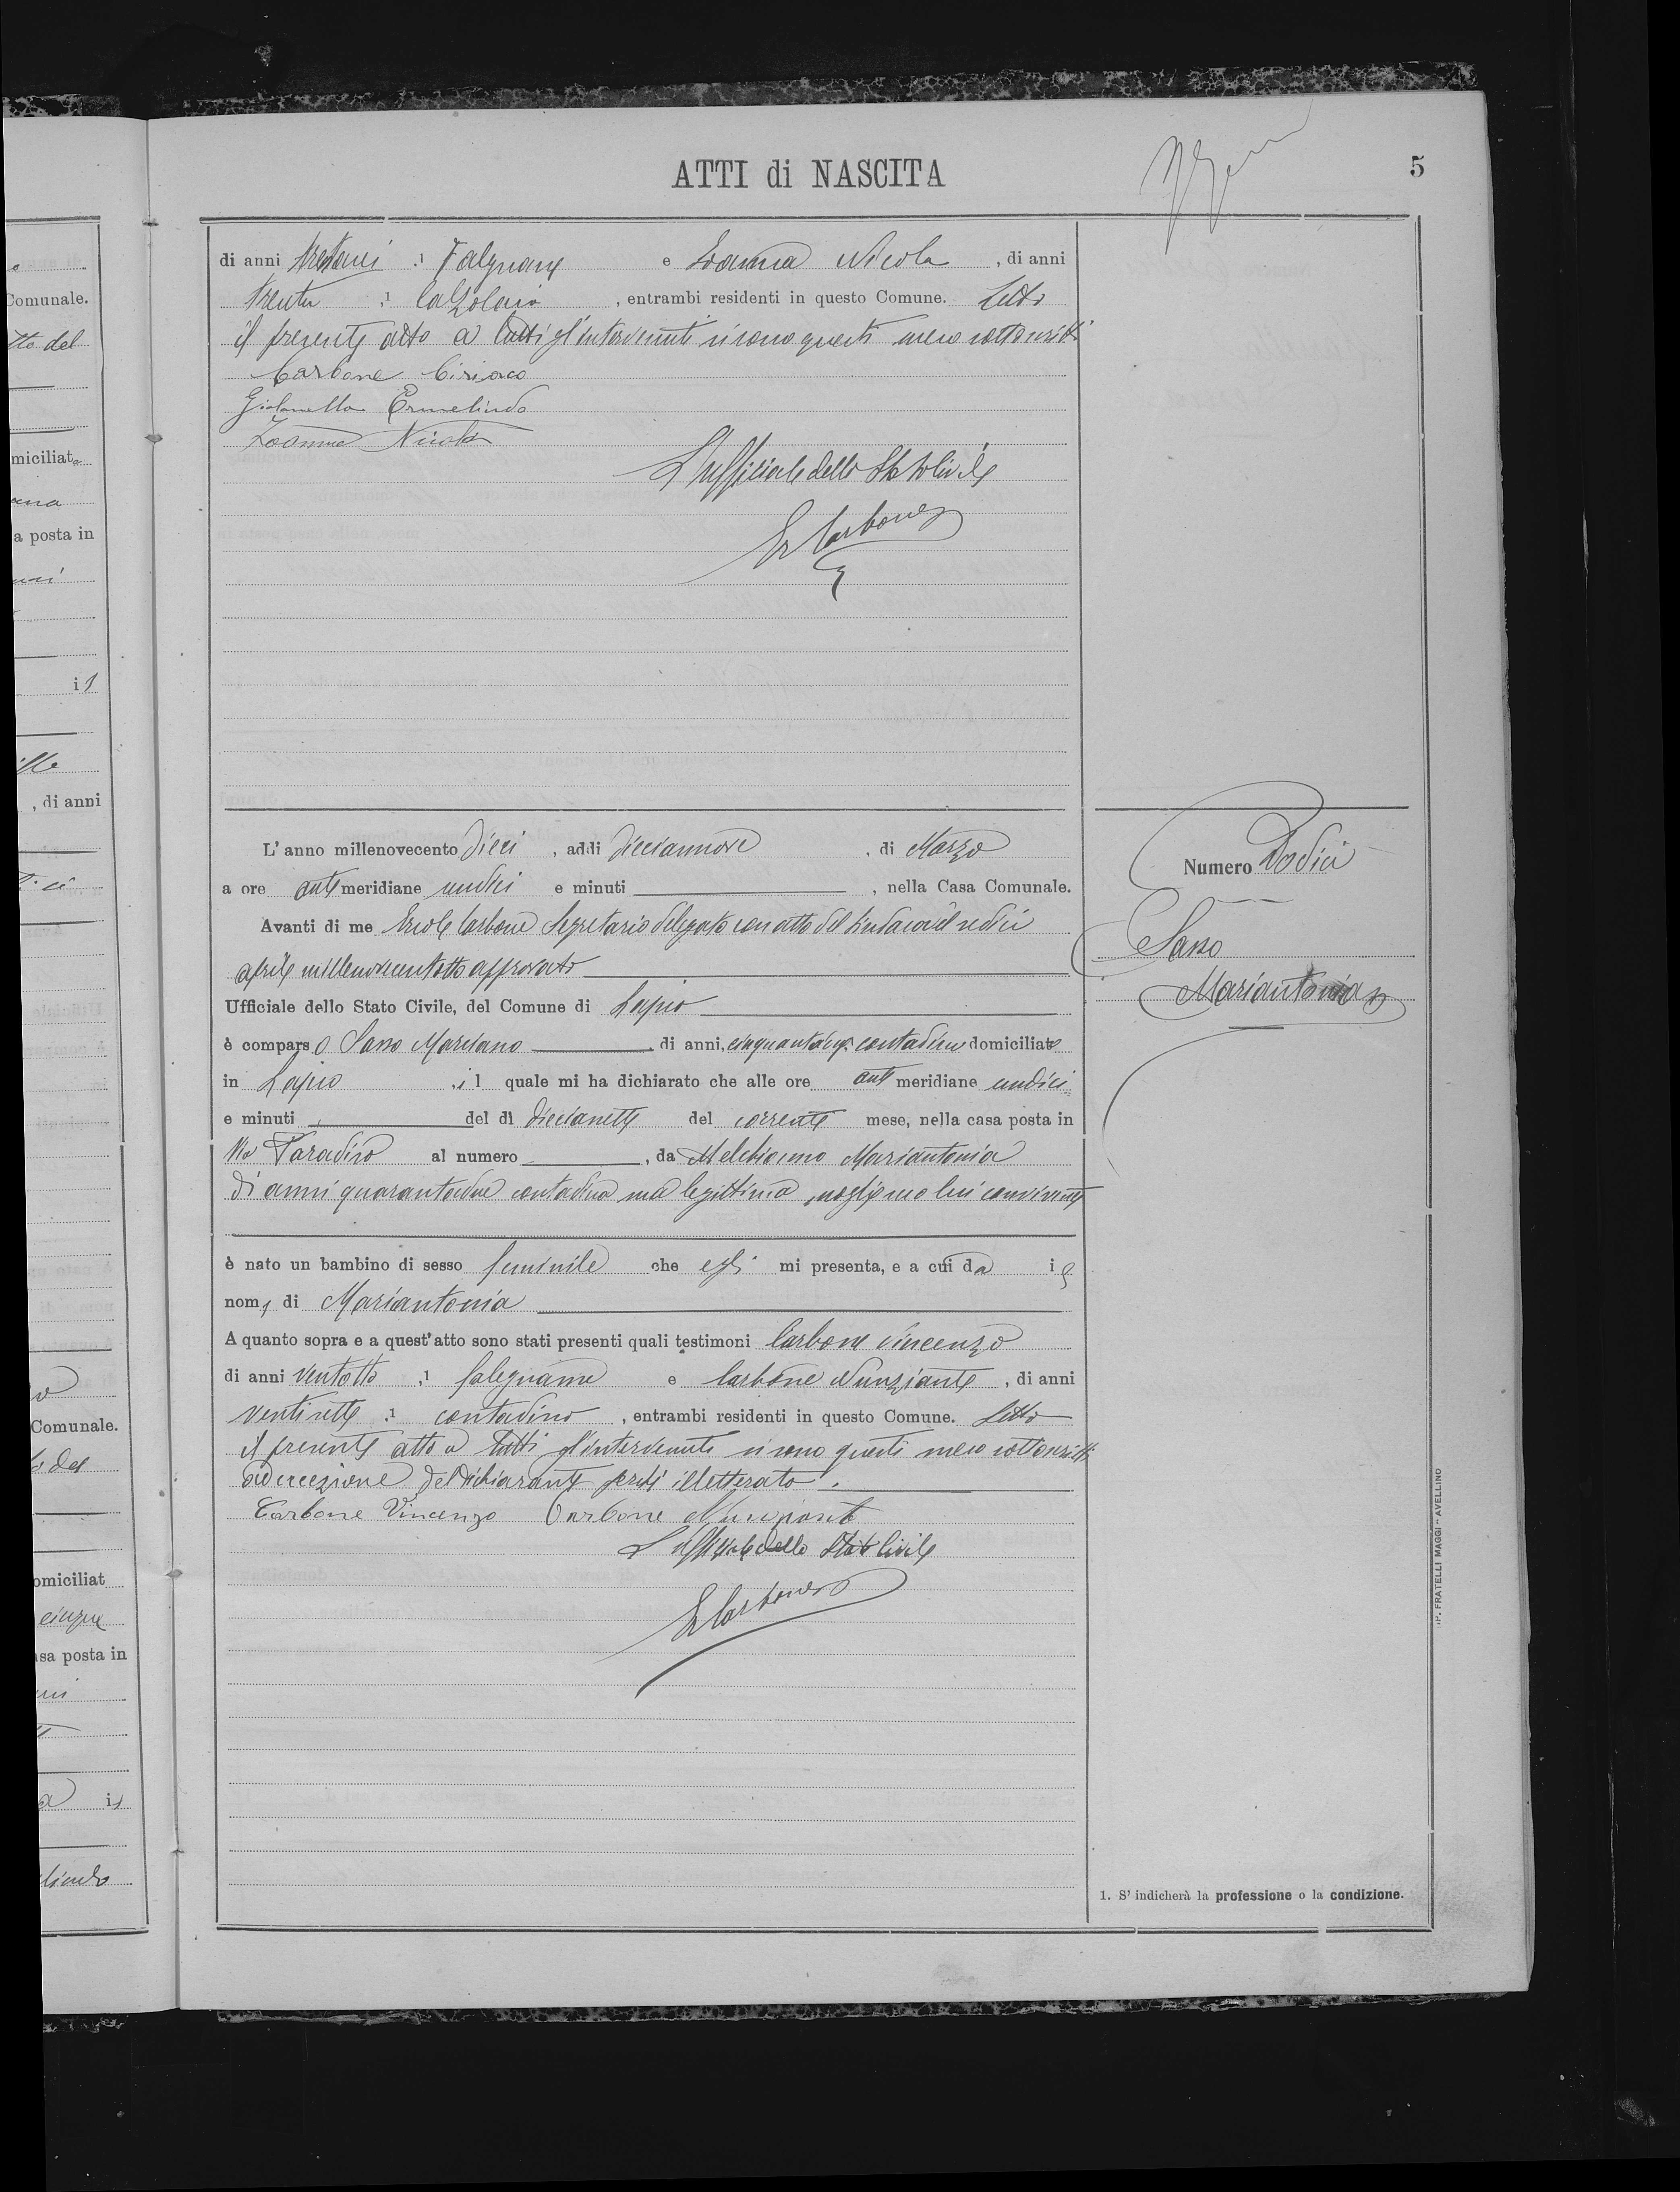 ATTI di NASCITA
5
di anni trentasei, 1 Falegname e Zoanna Nicola, di anni
trenta, 1 Calzolaio, entrambi residenti in questo Comune. Letto
il presente atto a tutti gl'intervenuti si sono questi meco sottoscritti
Carbone Ciriaco
Ermelindo
Nicola
L'ufficiale dello Stato Civile
E Carbone
Numero Dodici
Sasso
Mariantonia
L'anno millenovecento dieci, addì diciannove, di Marzo
a ore antimeridiane undici e minuti, nella Casa Comunale.
Avanti di me Ercole Carbone Segretario delegato con atto del Sindaco del sedici
aprile millenovecentotto approvato
Ufficiale dello Stato Civile, del Comune di Lapio
è comparso Sasso Marciano di anni, cinquantacinque contadino domiciliato
in Lapio, il quale mi ha dichiarato che alle ore antimeridiane undici
e minuti del dì diciasette del corrente mese, nella casa posta in
Via Paradiso al numero, da Melchionno Mariantonia
di anni quarantadue contadina sua legittima moglie seco lui convivente
è nato un bambino di sesso feminile che egli mi presenta, e a cui da il
nome di Mariantonia
A quanto sopra e a quest'atto sono stati presenti quali testimoni Carbone Vincenzo
di anni ventotto, 1 falegname e Carbone Nunziante, di anni
ventisette, 1 contadino, entrambi residenti in questo Comune. Letto
il presente atto a tutti gl'intervenuti si sono questi meco sottoscritti
ad eccezione del dichiarante perchè illetterato.
Carbone Vincenzo Carbone Nunziante
L'ufficiale dello Stato Civile
E Carbone
1. S'indicherà la professione o la condizione.
IP. FRATELLI MAGGI - AVELLINO
Comunale.
tto del
miciliato
a posta in
il
, di anni
Comunale.
del
omiciliat
cinque
sa posta in